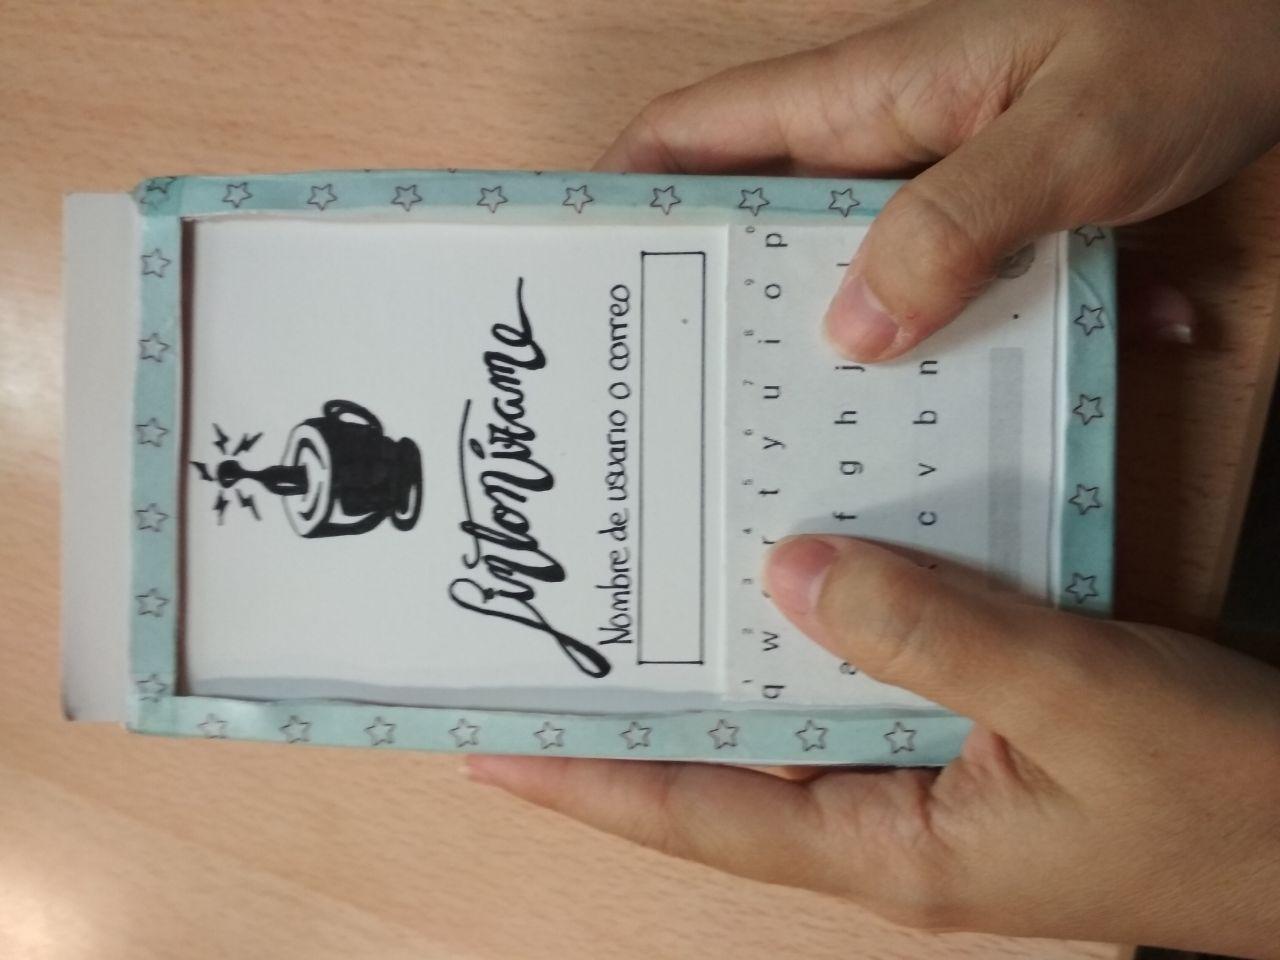 Sintonizame
Nombre de usuario o correo
1 2 3 4 5 6 7 8 9 0
q w r t y u i o p
a f g h j l
c v b n
.